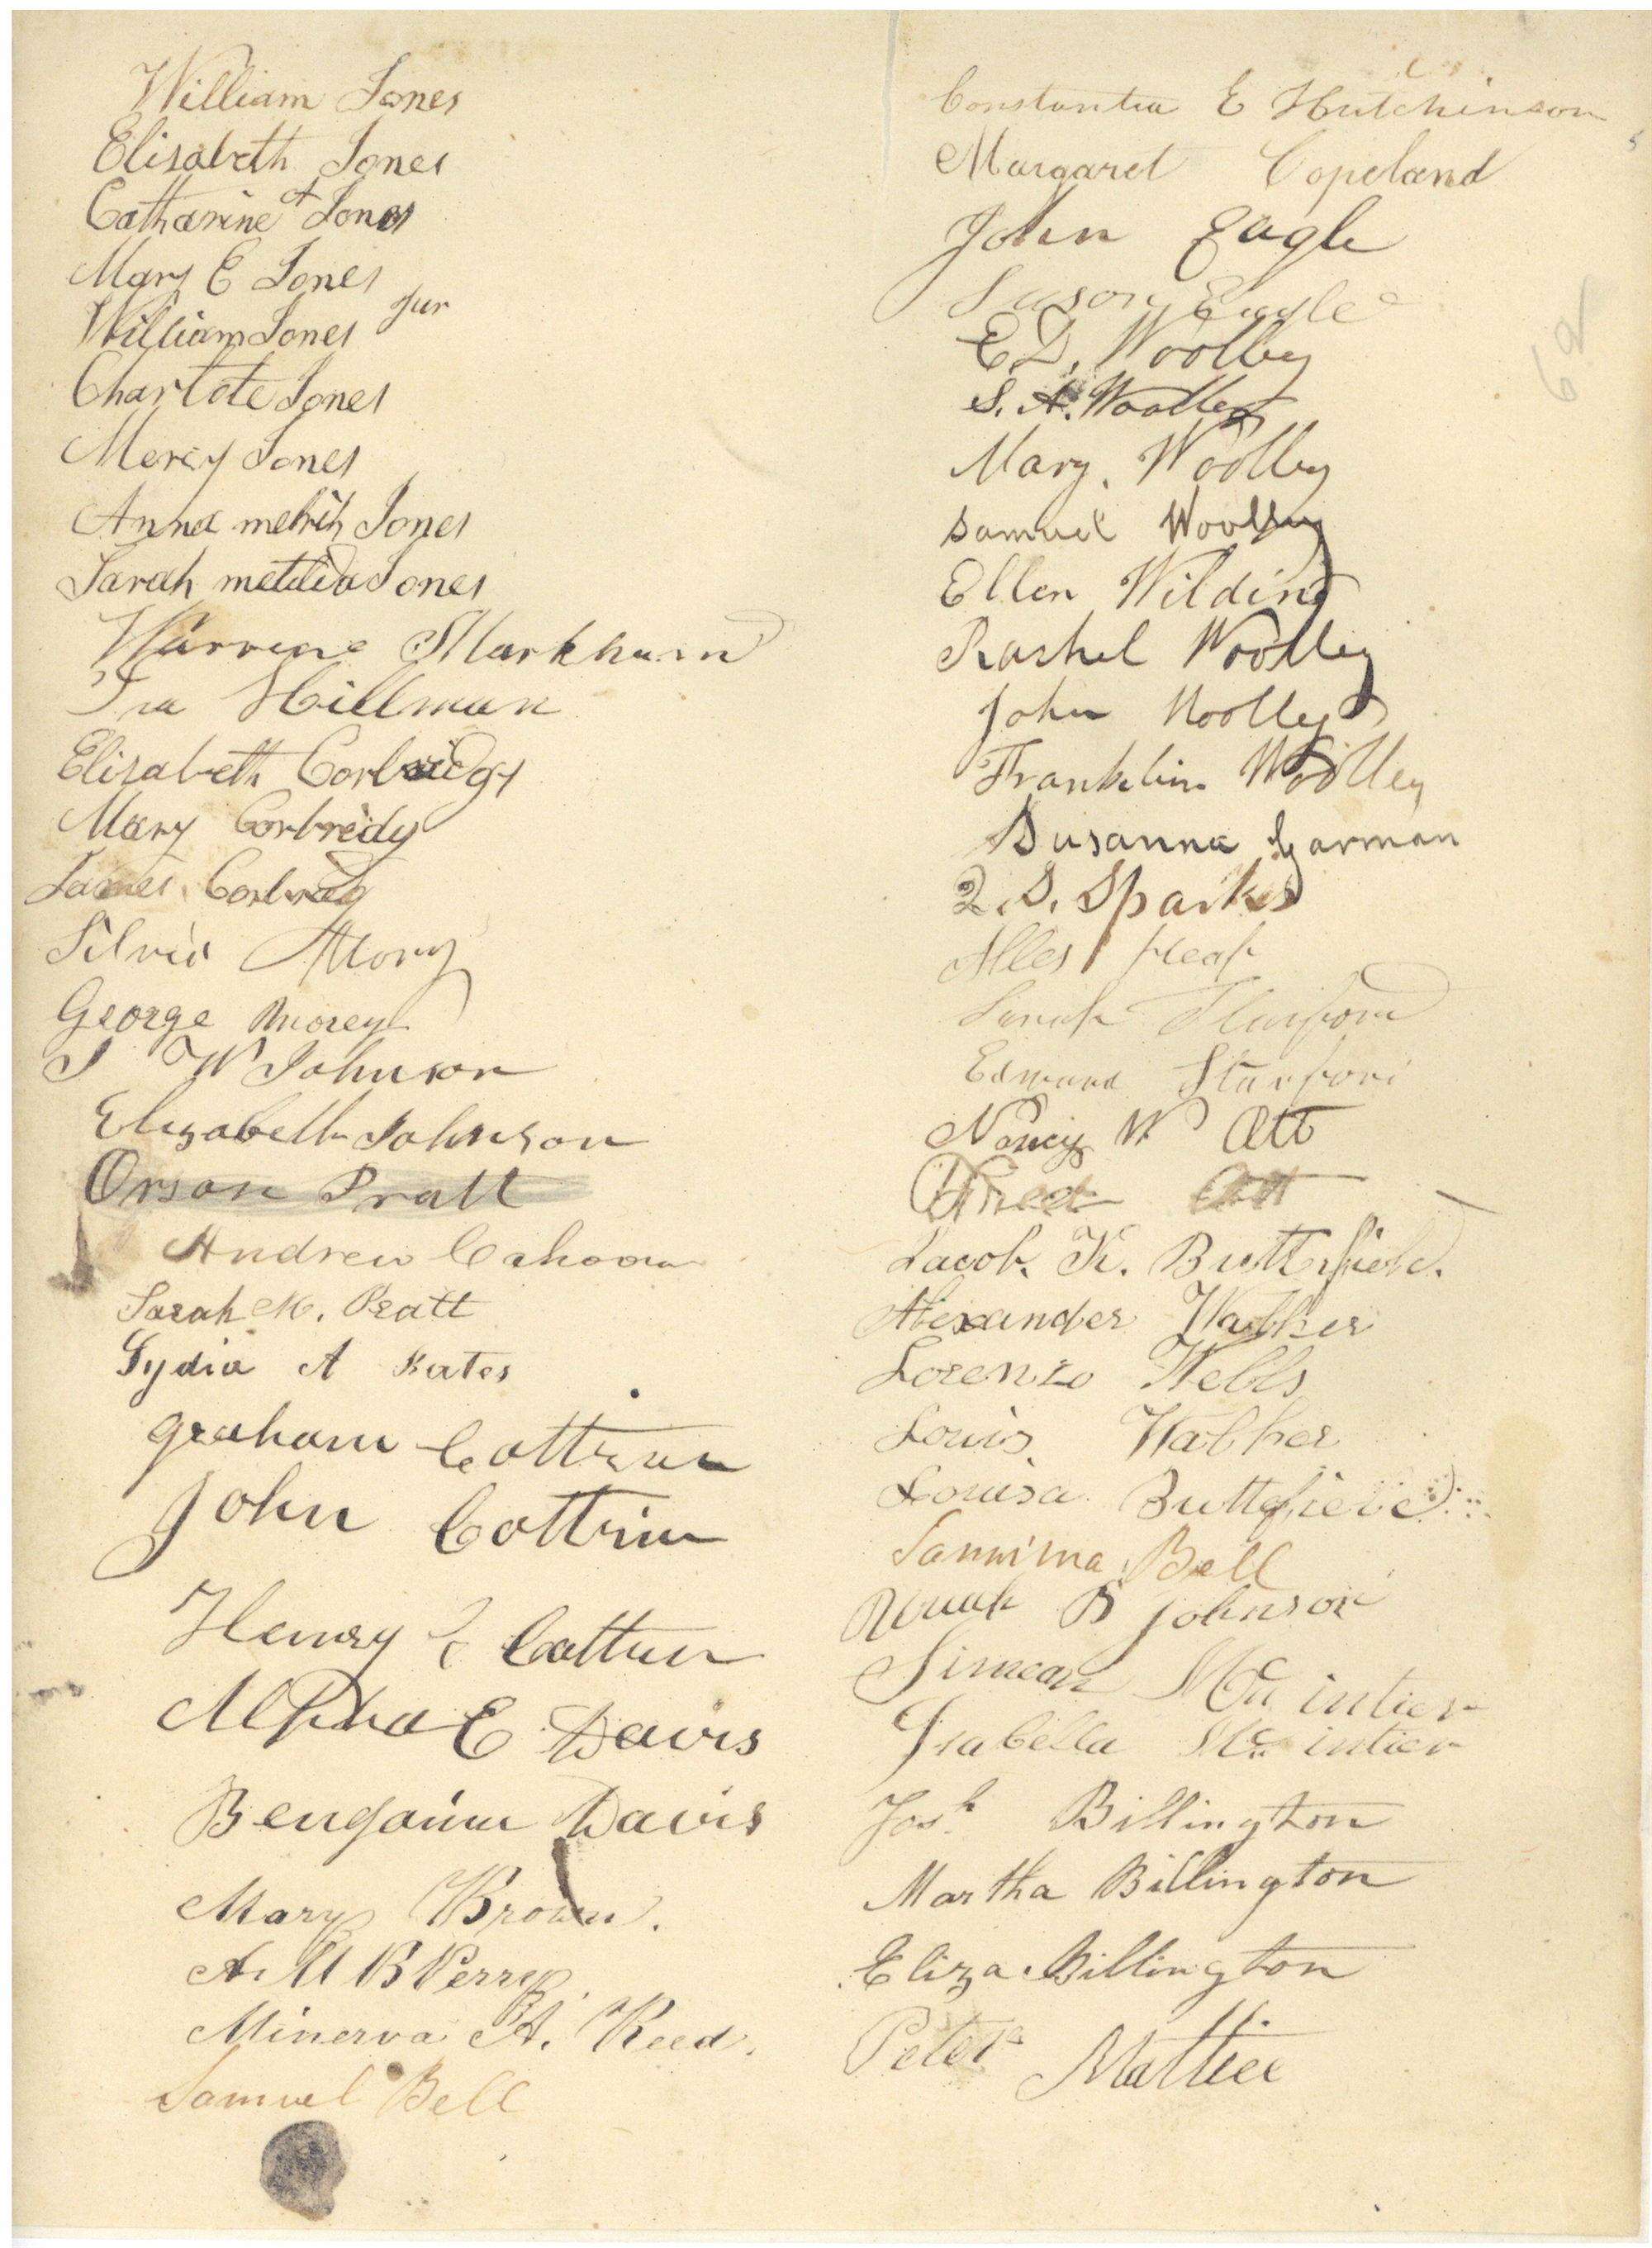 William Jones
Elisabeth Jones
Catharine A Jones
Mary E Jones
William Jones Jur
Charlote Jones
Mercy Jones
Anna Jones
Sarah Jones
Markham
Ira Hillman
Elisabeth
Mary Corbredy
James
Silvia Mory
George Morey
J W Johnson
Elizabeth Johnson
Orson Pratt
Andrew Cahoon
Sarah M. Pratt
Lydia A Bates
Graham Cottrin
John Cottrin
Henry
Alpha E Davis
Bengamin Davis
Mary Brown.
A. M B Perry.
Minerva A. Reed.
Samuel Bell
Constantia E Hutchinson
Margaret Copeland
John Eagle
Susan Eagle
E D. Woolley
S. A. Woolley
Mary. Woolley
Samuel Woolley
Ellen Wilding
Rachel Woolley
John Woolley
Franklin Woolley
Susanna
Q. S. Sparks
Sarah
Edmund
Nancy
Jacob. K. Butterfield.
Alexander Walker
Lorenzo Wells
Louis Walker
Louisa Butterfield
Bell
B Johnson
Simean Mc intier
Isabella Mc intier
Josh. Billington
Martha Billington
Eliza. Billington
Peter Mattice
62